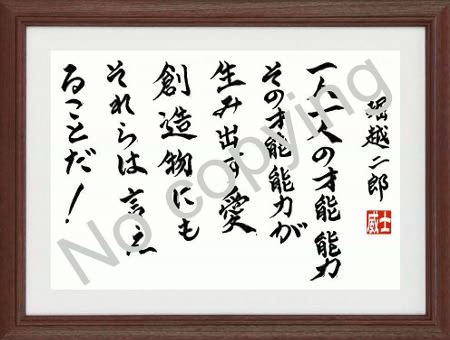 堀越二郎
威士
一人一人の才能 能力
その才能能力が
生み出す愛
創造物にも
それらは言え
ることだ！
No copying